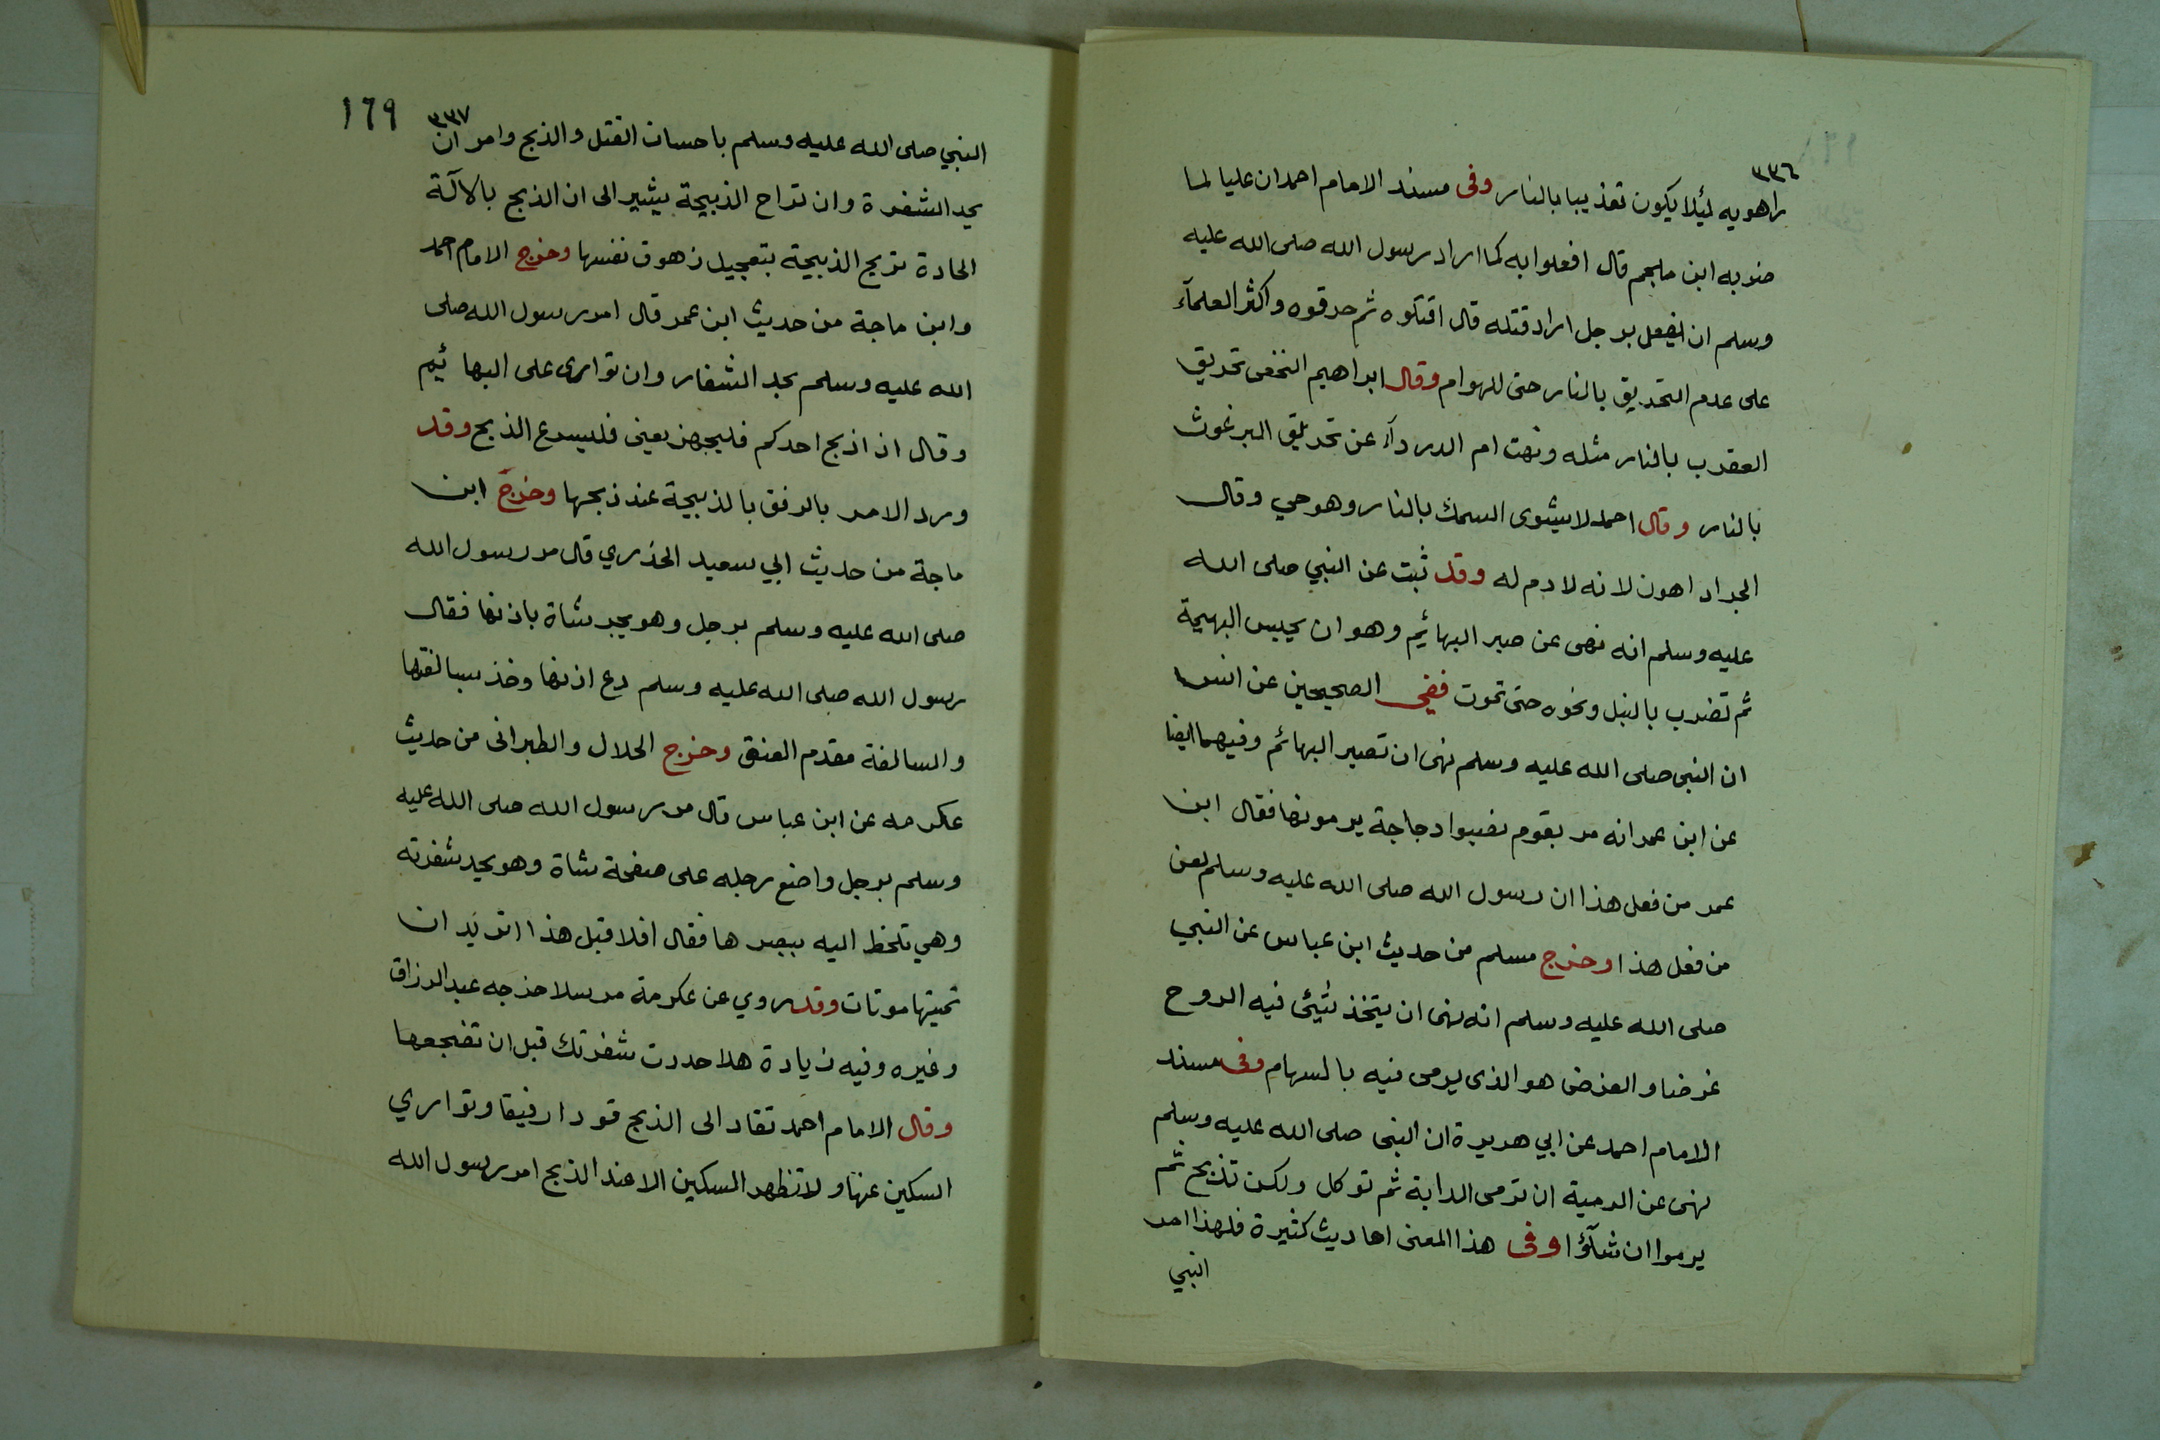 ٣٣٦
راهويه لئلا يكون تعذيبا بالنار وفى مسند الامام احمد ان عليا لما
ضربه ابن ملجم قال افعلوا به كما اراد رسول الله صلى الله عليه
وسلم ان يفعل برجل اراد قتله قال اقتلوه ثم حرقوه واكثر العلمآء
على عدم التحريق بالنار حتى للهوام وقال ابراهيم النخعى تحريق
العقرب بالنار مثله ونهت ام الدردآء عن تحريق البرغوث
بالنار وقال احمد لا يشوى السمك بالنار وهو حي وقال
الجراد اهون لانه لا دم له وقد ثبت عن النبي صلى الله
عليه وسلم انه نهى عن صبر البهائيم وهو ان يحبس البهيمة
ثم تضرب بالنبل ونحوه حتى تموت ففى الصحيحين عن انس
ان النبى صلى الله عليه وسلم نهى ان تصبر البهائم وفيهما ايضا
عن ابن عمر انه مر بقوم نصبوا دجاجة يرمونها فقال ابن
عمر من فعل هذا ان رسول الله صلى الله عليه وسلم لعن
من فعل هذا وخرج مسلم من حديث ابن عباس عن النبي
صلى الله عليه وسلم انه نهى ان يتخذ شيئ فيه الروح
غرضا والغرض هو الذى يرمى فيه بالسهام وفى مسند
الامام احمد عن ابي هريرة ان النبى صلى الله عليه وسلم
نهى عن الرمية ان ترمى الدابة ثم توكل ولكن تذبح ثم
يرموا ان شآؤا وفى هذا المعنى احاديث كثيرة فلهذا امر
النبي
١٦٩
٣٣٧
النبي صلى الله عليه وسلم باحسان القتل والذبح وامر ان
يحد الشفرة وان تراح الذبيحة يشير الى ان الذبح بالآلة
الحادة تريح الذبيحة بتعجيل زهوق نفسها وخرج الامام احمد
وابن ماجة من حديث ابن عمر قال امر رسول الله صلى
الله عليه وسلم بحد الشفار وان توارى على البهائيم
وقال اذا ذبح احدكم فليجهز يعنى فليسرع الذبح وقد
ورد الامر بالرفق بالذبيحة عند ذبحها وخرج ابن
ماجة من حديث ابي سعيد الخدري قال مر رسول الله
صلى الله عليه وسلم برجل وهو يجر شاة باذنها فقال
رسول الله صلى الله عليه وسلم دع اذنها وخذ بسالفتها
والسالفة مقدم العنق وخرج الخلال والطبرانى من حديث
عكرمه عن ابن عباس قال مر رسول الله صلى الله عليه
وسلم برجل واضع رجله على صفحة شاة وهو يحد شفرته
وهي تلحظ اليه ببصرها فقال افلا قبل هذا اتريد ان
تميتها موتات وقد روي عن عكرمة مرسلا خرجه عبد الرزاق
وغيره وفيه زيادة هلا حددت شفرتك قبل ان تضجعها
وقال الامام احمد تقاد الى الذبح قودا رفيقا وتواري
السكين عنها ولا تظهر السكين الا عند الذبح امر رسول الله